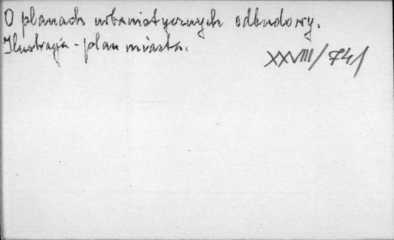 O planach urbanistycznych odbudowy.
Ilustracja - plan miasta.
XXVIII/741